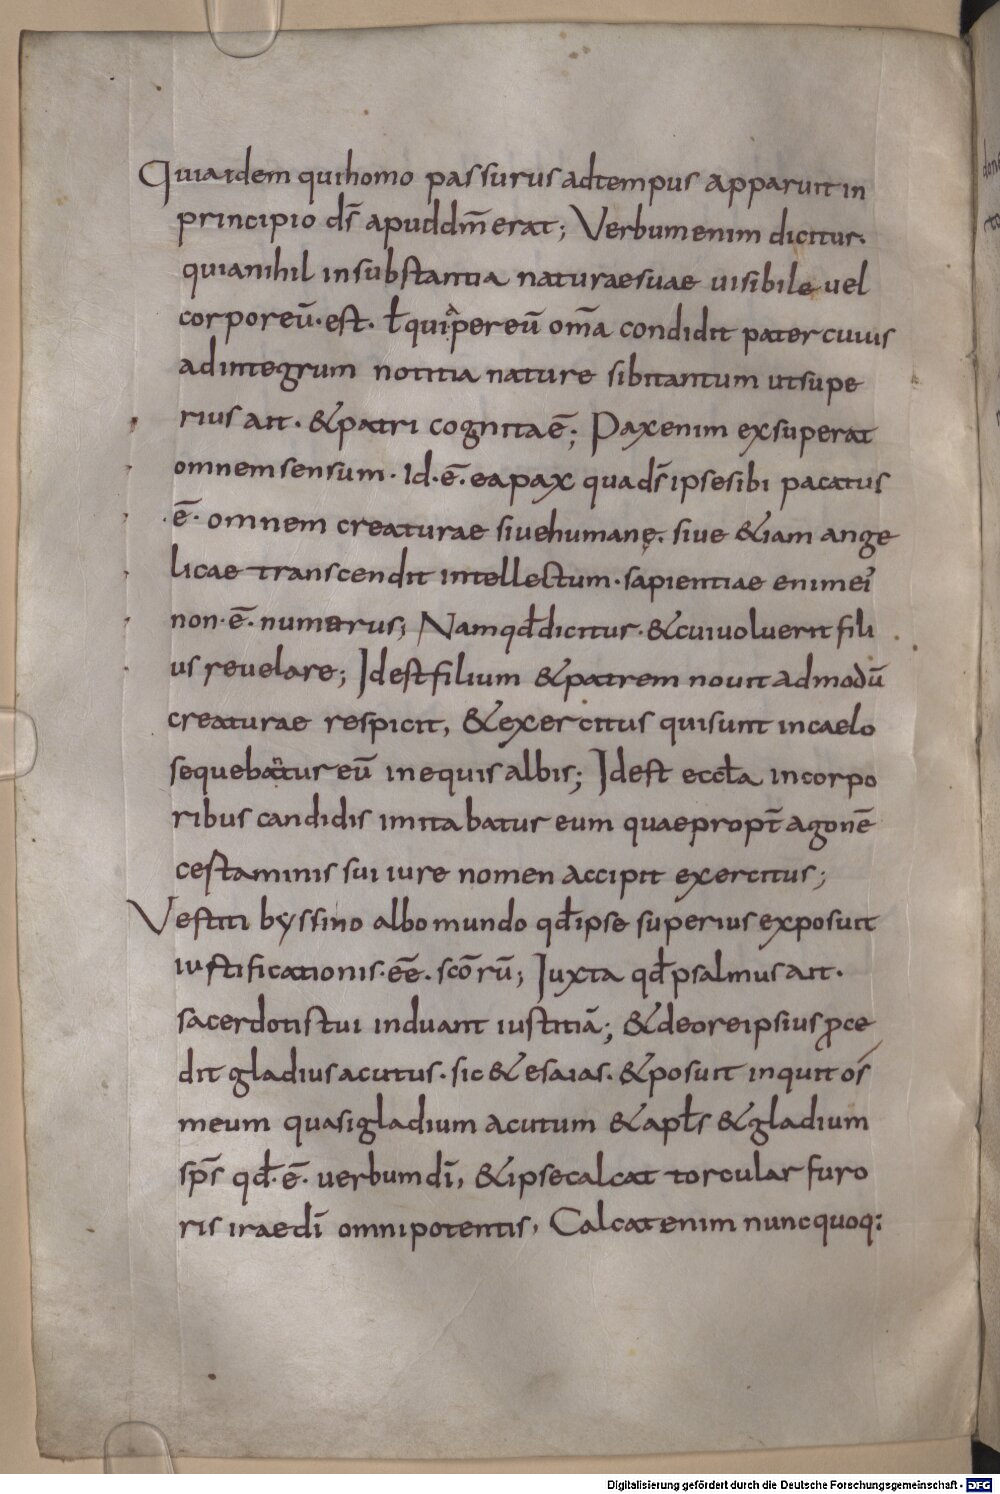 Quia idem qui homo passurus ad tempus apparuit in
principio ds̄ apud dm̄ erat; Verbum enim dicitur.
quia nihil in substantia naturae suae uisibile uel
corporeū·est· ł quia per eū om̄a condidit pater cuius
ad integrum notitia nature sibi tantum ut supe
rius ait· & patri cognita ē; Pax enim exsuperat
omnem sensum· Id·ē· ea pax qua ds̄ ipse sibi pacatus
·ē· omnem creaturae siue humanę· siue &iam ange
licae transcendit intellectum· sapientiae enim eī
non·ē· numerus; Nam qđ dicitur· & cui uoluerit fili
us reuelare; Id est filium & patrem nouit ad modū
creaturae respicit, & exercitus qui sunt in caelo
sequebatur eū in equis albis; Id est eccła in corpo
ribus candidis imitabatur eum quae propt̄ agonē
certaminis sui iure nomen accipit exercitus;
Vestiti byssino albo mundo qđ ipse superius exposuit
iustificationis·eē· scōrū; Iuxta qđ psalmus ait·
sacerdotis tui induant iustitiā; & de ore ipsius ꝓce
dit gladius acutus· sic & esaias· & posuit inquit os
meum quasi gladium acutum & apłs & gladium
sps̄ qđ·ē· uerbum dī, & ipse calcat torcular furo
ris irae dī omnipotentis, Calcat enim nunc quoq;
Digitalisierung gefördert durch die Deutsche Forschungsgemeinschaft - DFG